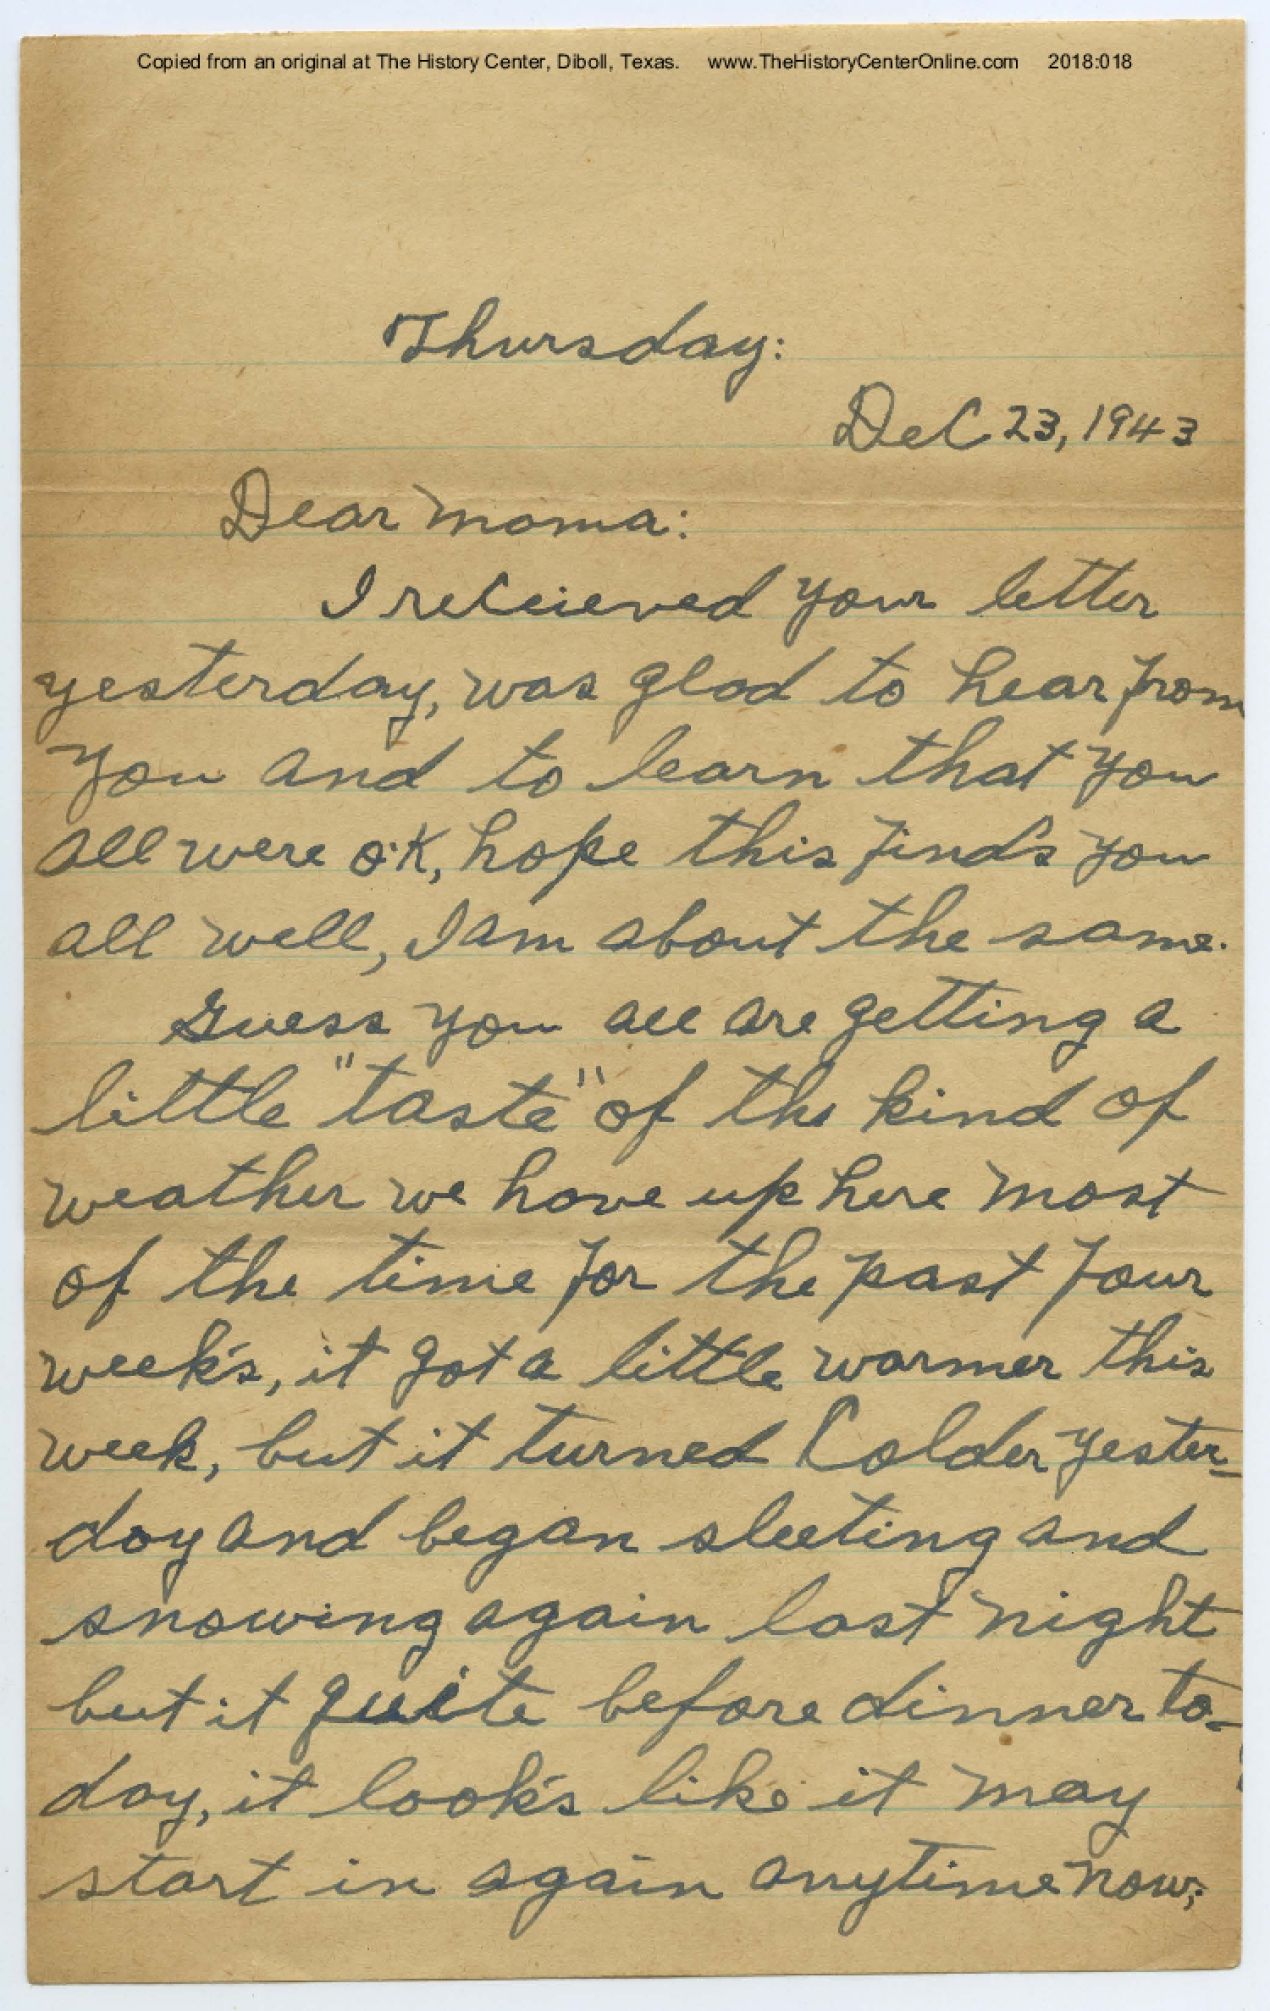 Copied from an original at The History Center, Diboll, Texas. www.TheHistoryCenterOnline.com 2018:018
Thursday:
Dec 23, 1943
Dear Moma:
I recieved your letter
yesterday, was glad to hear from
you and to learn that you
all were o.K, hope this find's you
all well, I am about the same.
Guess you all are getting a
little "taste" of the kind of
weather we have up here most
of the time for the past four
week's, it got a little warmer this
week, but it turned Colder yester-
day and began sleeting and
snowing again last night
but it quite before dinner to-
day, it look's like it may
start in again anytime now;